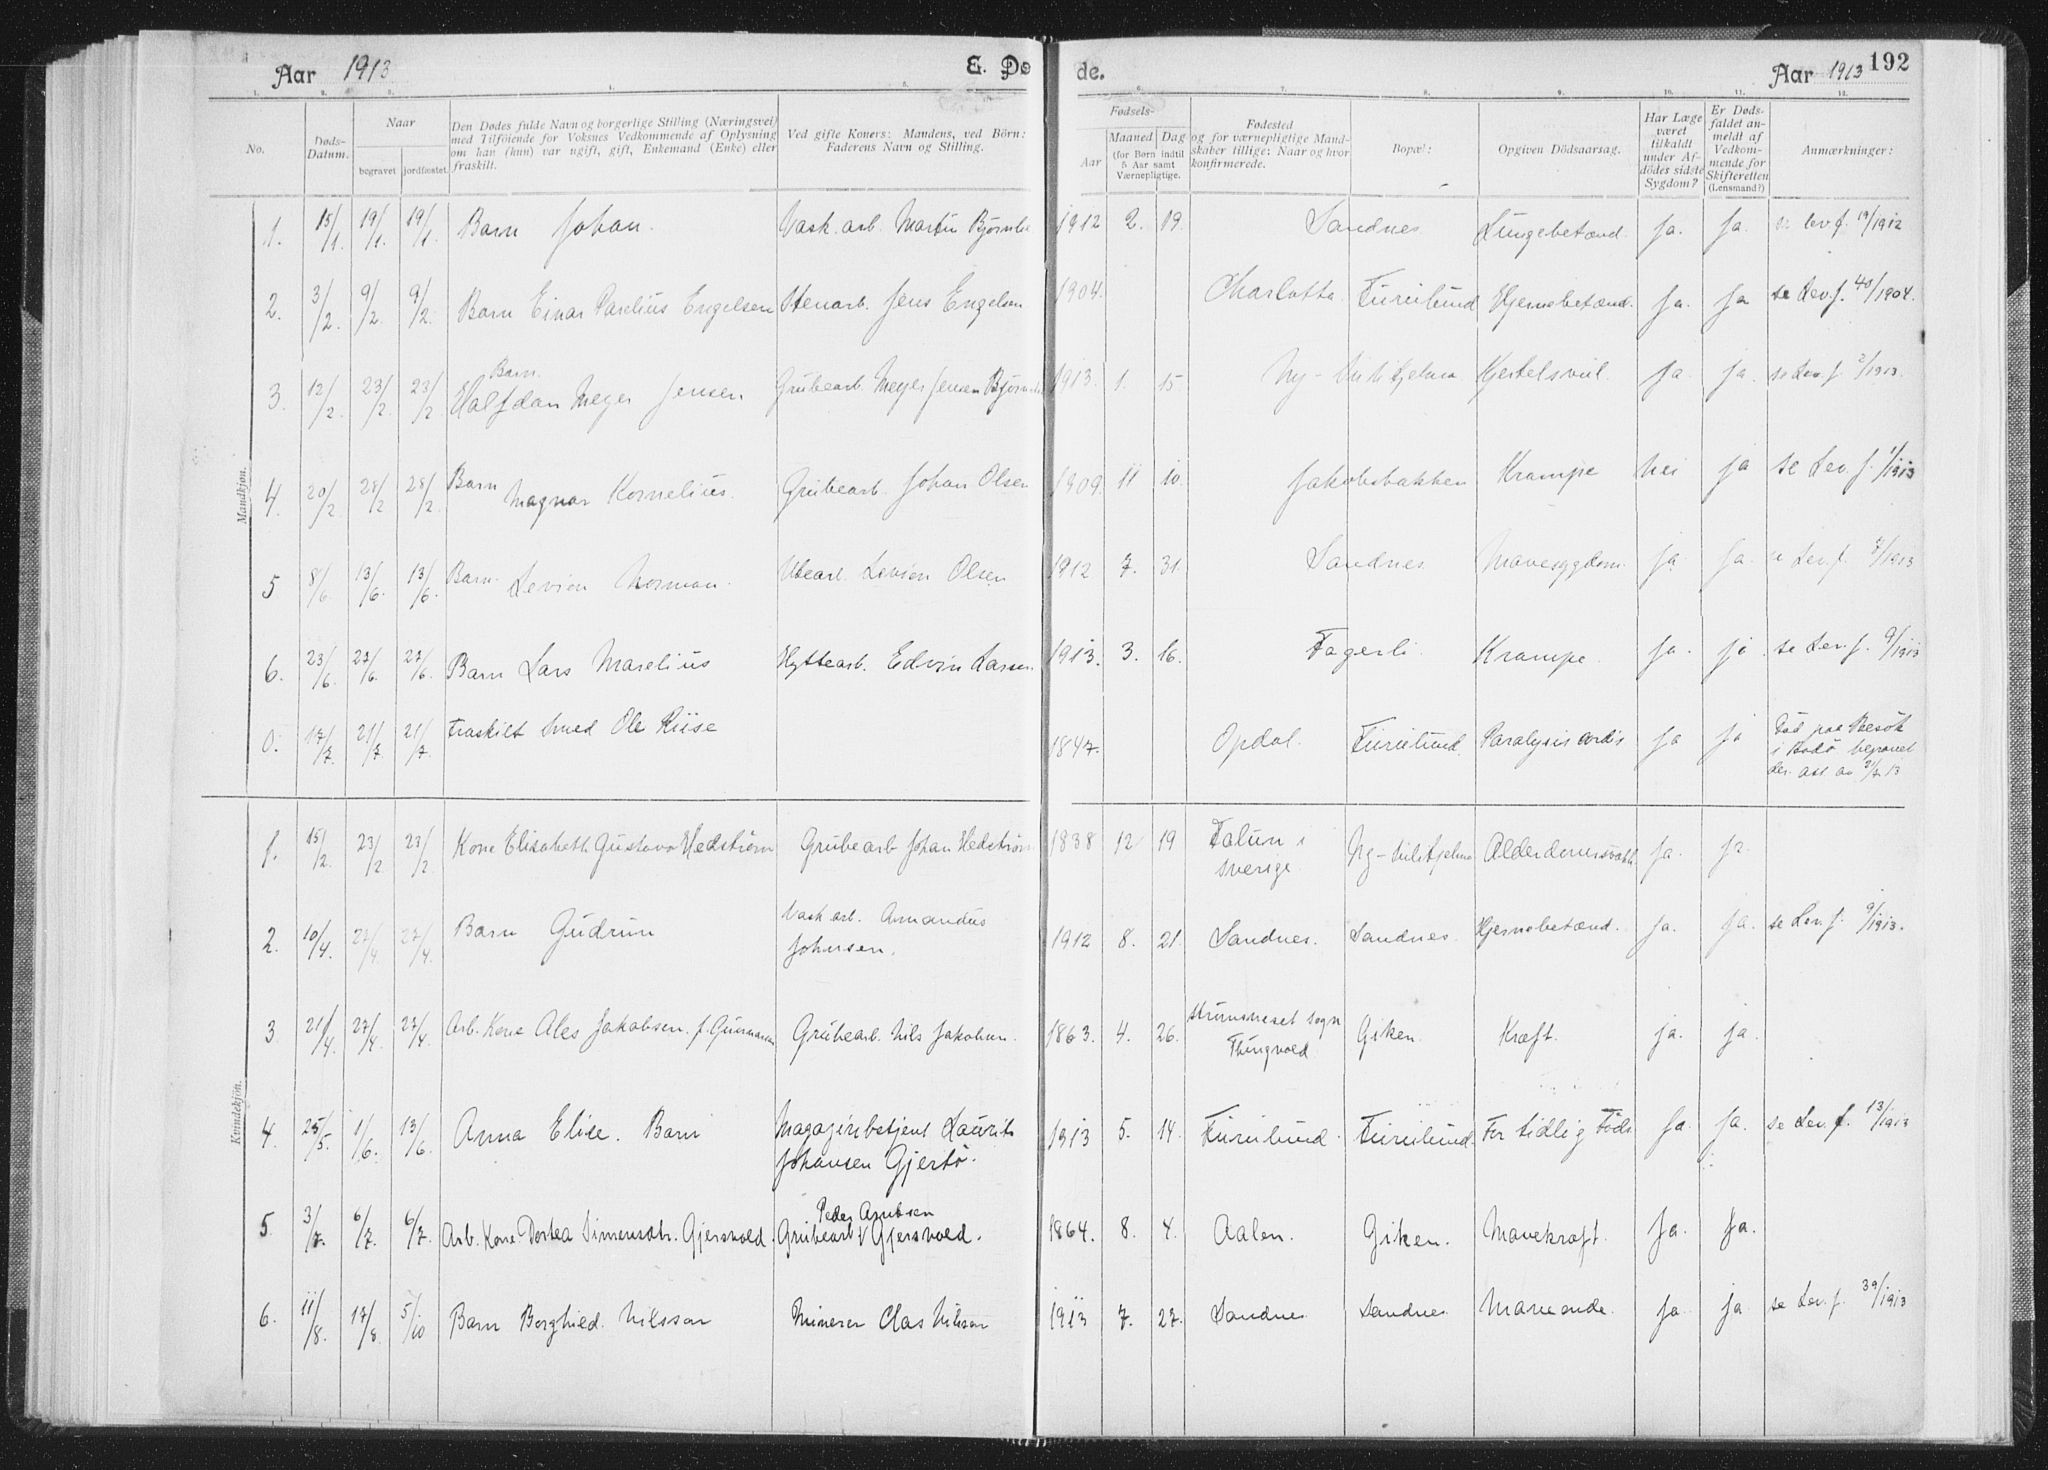 Aar 1913 E. Dø de. Aar 1913 192
1. 2. 3. 4. 5. 6. 7. 8. 9. 10. 11. 12.
No.
Døds-Datum.
Naar
begravet jordfæstet.
Den Dødes fulde Navn og borgerlige Stilling (Næringsvei) med Tilföiende for Voksnes Vedkommende af Oplysning om han (hun) var ugift, gift, Enkemand (Enke) eller fraskilt.
Ved gifte Koner: Mandens, ved Börn: Faderens Navn og Stilling.
Fødsels-
Aar Maaned Dag
(for Børn indtil 5 Aar samt Værnepligtige.
Fødested og for værnepligtige Mandskaber tillige: Naar og hvor konfirmerede.
Bopæl:
Opgiven Dödsaarsag.
Har Læge været tilkaldt under Afdödes sidste Sygdom?
Er Dødsfaldet anmeldt af Vedkommende for Skifteretten (Lensmand?)
Anmærkninger:
Mandkjøn.
1. 15/1. 19/1. 19/1. Barn Johan. Vask. arb. Martin 1912 2. 19. Sandnes Lungebetænd. Ja. Ja. se lev f. 19/1912
2. 3/2. 9/2. 9/2. Barn Einar Parelius Engelsen Stenarb. Jens Engelsen 1904. Charlotta Furulund Hjernebetænd. Ja. Ja se Lev.f. 40/1904.
3. 12/2. 23/2. 23/2 Barn. Halfdan Meyer Jensen Grubearb. Meyer Jensen 1913. 1. 15 Ny-Sulitjelma Kjertelsvul. Ja. ja. se Lev. f. 2/1913.
4. 20/2. 28/2 28/2. Barn Magnar Kornelius. Grubearb. Johan Olsen 1909 11 10. Jakobsbakken Krampe Nei ja se Lev. f. 1/1913
5 8/6. 13/6. 13/6. Barn. Levien Norman. Utearb. Levien Olsen 1912 7. 31. Sandnes Mavesygdom. ja Ja. Lev. f. /1913
6. 23/6. 27/6. 27/6. Barn Lars Marelius Hyttearb. Edvin Larsen 1913. 3. 16. Fagerli. Krampe. Ja. ja se Lev. f. 9/1913
0. 17/7. 21/7. 21/7. Fraskilt Smed Ole Riise 1847. Opdal. Furulund. Paralysis cordis ja ja Død paa Besøk i Bodø begravet der. att av 21/7 13
Kvindekjön.
1. 15/2. 23/2 23/2 Kone Elisabeth Gustava Hedström Grubearb Johan Hedström 1838 12 19 Falun i Sverige. Ny-Sulitjelma Ja. ja.
2. 10/4. 27/4. 27/4. Barn Gudrun Vask arb. Amandus Johnsen. 1912 8. 21. Sandnes. Sandnes. Hjernebetænd. Ja. Ja. se Lev. f. 9/1913.
3 21/4. 27/4. 27/4. Arb. Kone Ales Jakobsen. f. Grubearb. Nils Jakobsen. 1863. 4. 26. Strumsneset sogn Thingvold. Giken. Kræft. ja. ja.
4. 25/5. 1/6. 13/6. Anna Elise. Barn Magazinbetjent Laurits Johansen Gjertø. 1913 5. 14. Furulund. Furulund. For tidlig Føds. Ja. Ja. se Lev. f. 13/1913
5. 3/7. 6/7. 6/7. Arb. Kone Dortea Simensdtr. Gjersvold. Grubearb Peder Arntsen Gjersvold. 1864. 8. 4. Aalen. Giken. Mavekræft. Ja. Ja.
6. 11/8. 17/8 5/10 Barn Borghild. Nilsson Minerer Clas Nilson 1913 7. 27. Sandnes Sandnes Maveonde. Ja. ja. se Lev. f. 39/1913